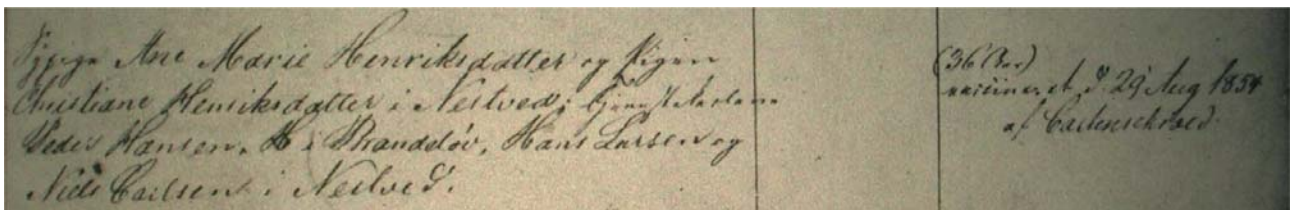 Pigen Ane Marie Henriksdatter og Pigen
Christiane Henriksdatter i Nestved; Tjenestekarlene
Peder Hansen, H i Brandelöv, Hans Larsen og
Niels Carlsen i Nestved.
(36 Aar)
vaccineret d. 29 Aug 1854
af Carlenschroed